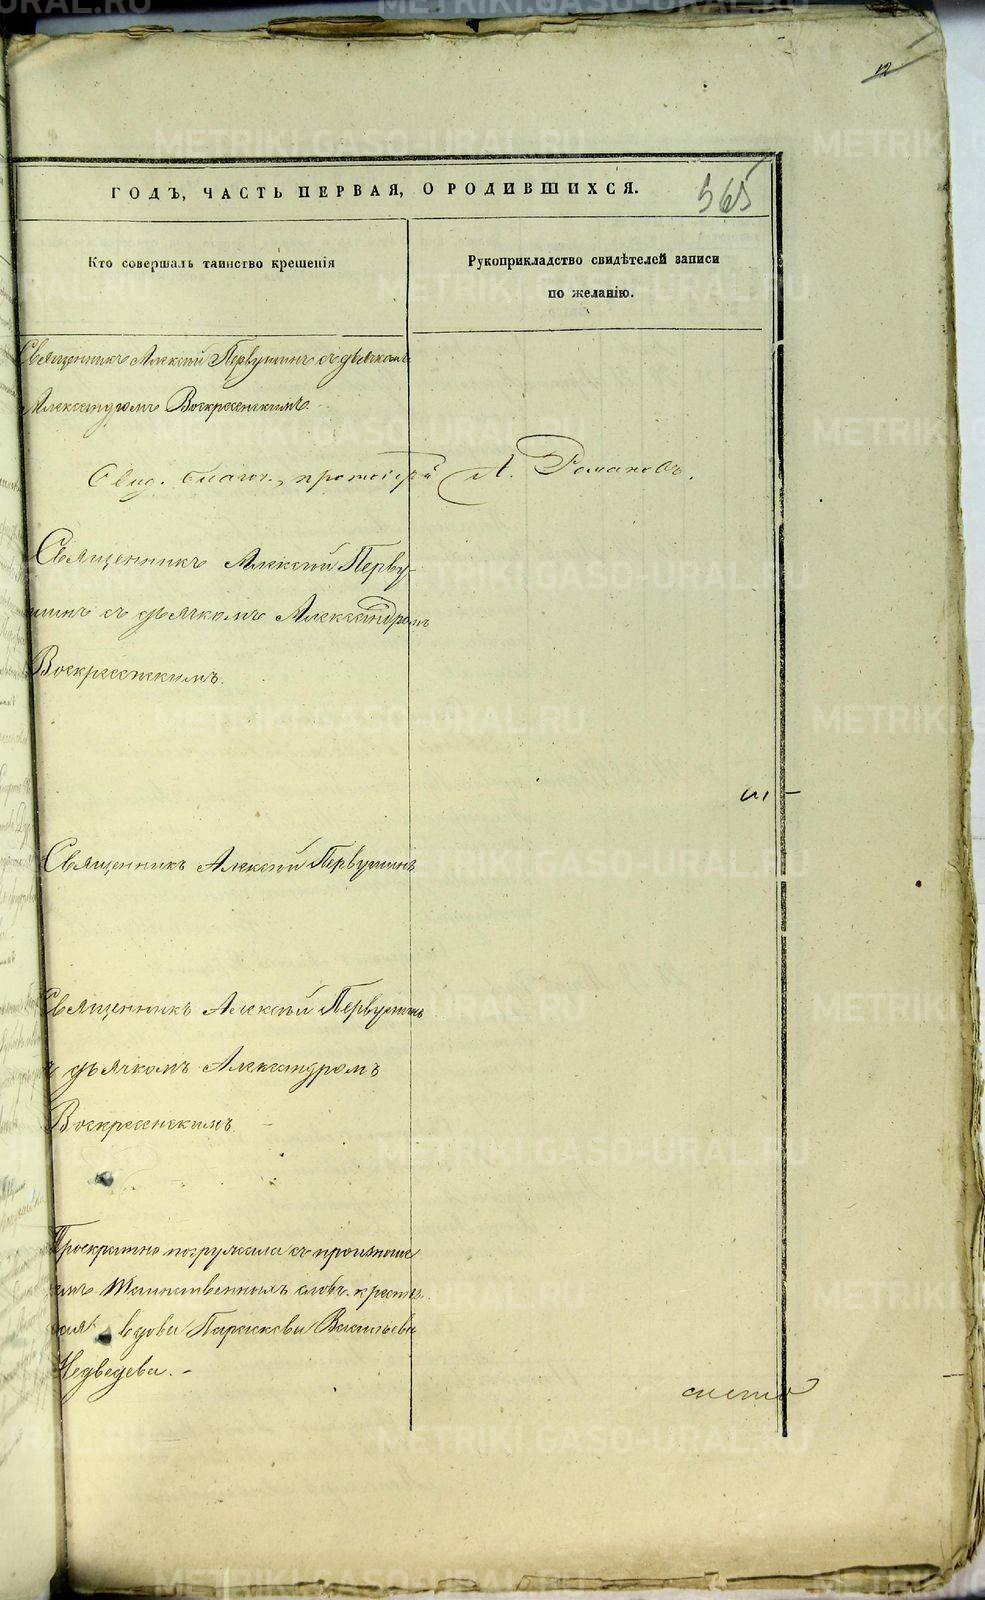 12
ГОДЪ, ЧАСТЬ ПЕРВАЯ, О РОДИВШИХСЯ.
565
Кто совершалъ таинство крещенія
Рукоприкладство свидѣтелей записи
по желанію.
Священникъ Алексій Первушинъ съ дьячкомъ
Александромъ Воскресенскимъ.
Свид. благоч., протоіерей А. Романовъ.
Священникъ Алексій Перву-
шинъ съ дьячкомъ Александромъ
Воскресенскимъ.
Священникъ Алексій Первушинъ
Священникъ Алексій Первушинъ
съ дьячкомъ Александромъ
Воскресенскимъ.
Троекратно погружала съ произноше
емъ таинственныхъ словъ крестья
ская вдова Параскева Васильева
Медведева.
METRIKI.GASO-URAL.RU